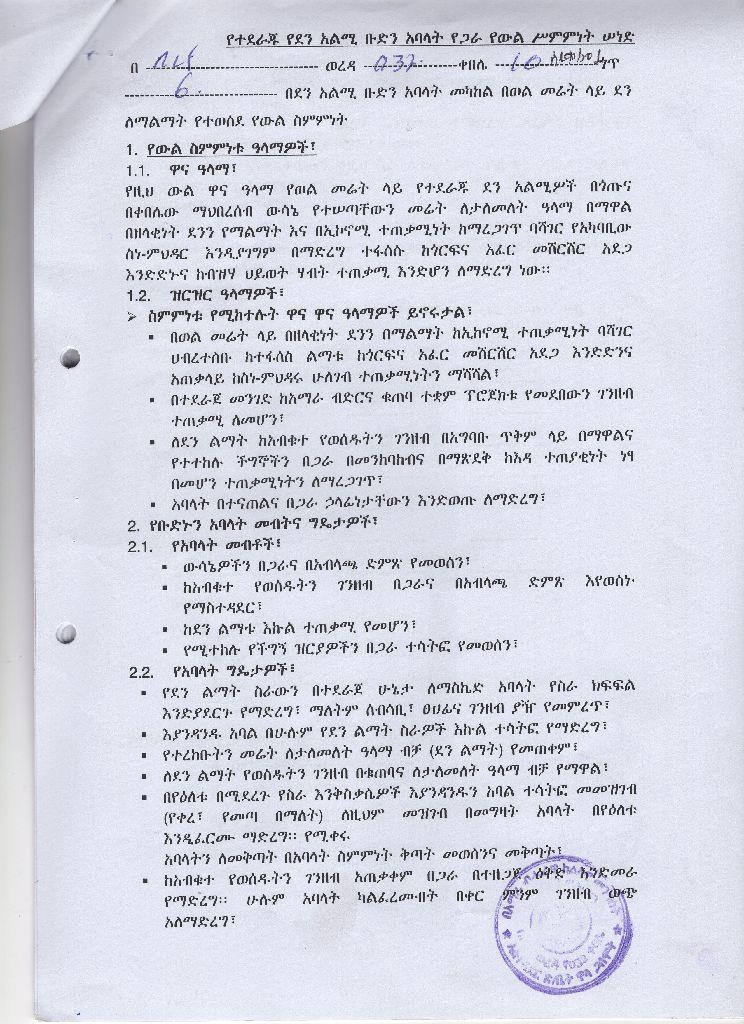 የተደራጁ የደን አልሚ ቡድን አባላት የጋራ የውል ሥምምነት ሠነድ
በ ---------- ወረዳ ---------- ቀበሌ 10 ---------- ጎጥ
6 ---------- በደን አልሚ ቡድን አባላት መካከል በወል መሬት ላይ ደን
ለማልማት የተወሰደ የውል ስምምነት
1. የውል ስምምነቱ ዓላማዎች፣
1.1. ዋና ዓላማ፣
የዚህ ውል ዋና ዓላማ የወል መሬት ላይ የተደራጁ ደን አልሚዎች በጎጡና
በቀበሌው ማህበረሰብ ውሳኔ የተሠጣቸውን መሬት ለታለመለት ዓላማ በማዋል
በዘላቂነት ደንን የማልማት እና በኢኮኖሚ ተጠቃሚነት ከማረጋገጥ ባሻገር የአካባቢው
ስነ-ምህዳር እንዲያገግም በማድረግ ተፋሰሱ ከጎርፍና አፈር መሸርሸር አደጋ
እንድድኑና ከብዝሃ ህይወት ሃብት ተጠቃሚ እንድሆን ለማድረግ ነው፡፡
1.2. ዝርዝር ዓላማዎች፣
➢ ስምምነቱ የሚከተሉት ዋና ዋና ዓላማዎች ይኖሩታል፣
▪ በወል መሬት ላይ በዘላቂነት ደንን በማልማት ከኢኮኖሚ ተጠቃሚነት ባሻገር
ህብረተሰቡ ከተፋሰስ ልማቱ ከጎርፍና አፈር መሸርሸር አደጋ እንድድንና
አጠቃላይ ከስነ-ምህዳሩ ሁለገብ ተጠቃሚነትን ማሻሻል፣
▪ በተደራጀ መንገድ ከአማራ ብድርና ቁጠባ ተቋም ፕሮጀክቱ የመደበውን ገንዘብ
ተጠቃሚ ለመሆን፣
▪ ለደን ልማት ከአብቁተ የወሰዱትን ገንዘብ በአግባቡ ጥቅም ላይ በማዋልና
የተተከሉ ችግኞችን በጋራ በመንከባከብና በማጽደቅ ከእዳ ተጠያቂነት ነፃ
በመሆን ተጠቃሚነትን ለማረጋገጥ፣
▪ አባላት በተናጠልና በጋራ ኃላፊነታቸውን እንድወጡ ለማድረግ፣
2. የቡድኑን አባላት መብትና ግዴታዎች፣
2.1. የአባላት መብቶች፣
▪ ውሳኔዎችን በጋራና በአብላጫ ድምጽ የመወሰን፣
▪ ከአብቁተ የወሰዱትን ገንዘብ በጋራና በአብላጫ ድምጽ እየወሰኑ
የማስተዳደር፣
▪ ከደን ልማቱ እኩል ተጠቃሚ የመሆን፣
▪ የሚተከሉ የችግኝ ዝርያዎችን በጋራ ተሳትፎ የመወሰን፣
2.2. የአባላት ግዴታዎች፣
▪ የደን ልማት ስራውን በተደራጀ ሁኔታ ለማስኬድ አባላት የስራ ክፍፍል
እንድያደርጉ የማድረግ፣ ማለትም ሰብሳቢ፣ ፀሀፊና ገንዘብ ያዥ የመምረጥ፣
▪ እያንዳንዱ አባል በሁሉም የደን ልማት ስራዎች እኩል ተሳትፎ የማድረግ፣
▪ የተረከቡትን መሬት ለታለመለት ዓላማ ብቻ (ደን ልማት) የመጠቀም፣
▪ ለደን ልማት የወሰዱትን ገንዘብ በቁጠባና ለታለመለት ዓላማ ብቻ የማዋል፣
▪ በየዕለቱ በሚደረጉ የስራ እንቅስቃሴዎች እያንዳንዱን አባል ተሳትፎ መመዝገብ
(የቀረ፣ የመጣ በማለት) ለዚህም መዝገብ በመግዛት አባላት በየዕለቱ
እንዲፈርሙ ማድረግ፡፡ የሚቀሩ
አባላትን ለመቅጣት በአባላት ስምምነት ቅጣት መወሰንና መቅጣት፣
▪ ከአብቁተ የወሰዱትን ገንዘብ አጠቃቀም በጋራ በተዘጋጀ ዕቅድ እንድመራ
የማድረግ፡፡ ሁሉም አባላት ካልፈረሙበት በቀር ምንም ገንዘብ ወጭ
አለማድረግ፣